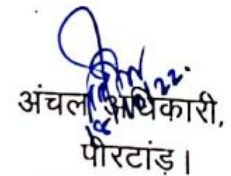 अंचल अधिकारी,
पीरटांड़।